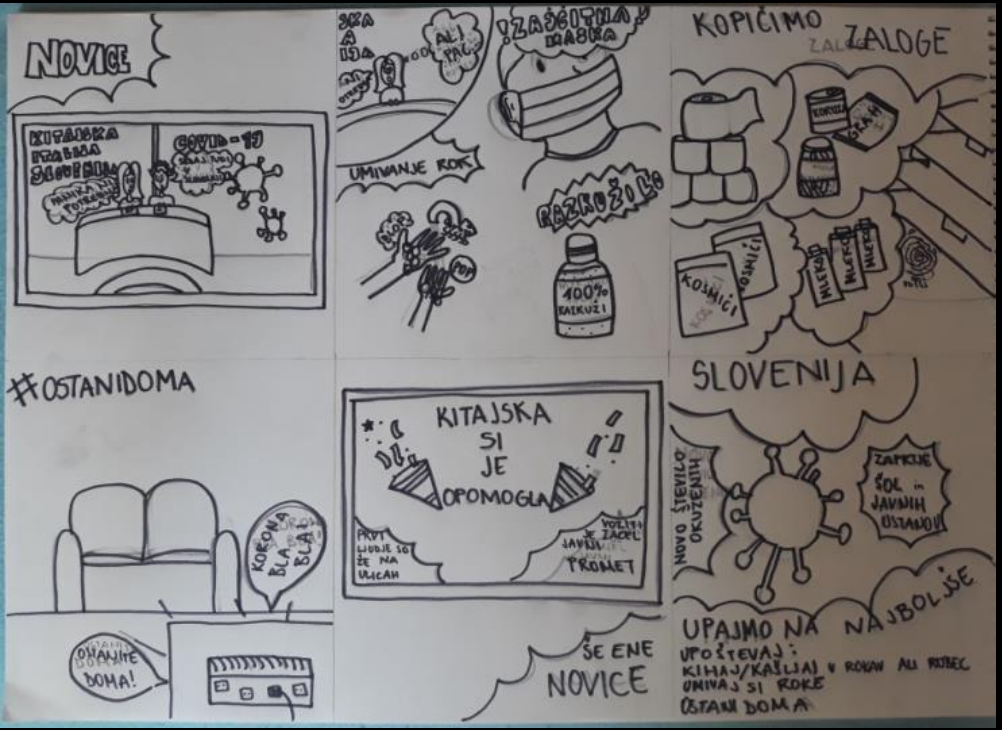 NOVICE
KITAJSKA
ITALIJA
SLOVENIJA
COVID-19
MASKA NI
POTREBNA
SKA
A
IJA
ALI
PAČ
!ZAŠČITNA!
MASKA
UMIVANJE ROK
BLOP
POP
RAZKUŽILO
100%
RAZKUŽI
KOPIČIMO
ZALOGE
KORUZA
GRAH
KOSMIČI
KOSMIČI
MLEKO
MLEKO
MLEKO
#OSTANIDOMA
KORONA
BLA
BLA!
OSTANITE
DOMA!
KITAJSKA
SI
JE
OPOMOGLA
PRVI
LJUDJE SO
ŽE NA
ULICAH
VOZITI
JE ZAČEL
JAVNI
PROMET
ŠE ENE
NOVICE
SLOVENIJA
NOVO ŠTEVILO
OKUŽENIH
ZAPRTJE
ŠOL in
JAVNIH
USTANOV
UPAJMO NA NAJBOLJŠE
UPOŠTEVAJ:
KIHAJ/KAŠLJAJ V ROKAV ALI ROBEC
UMIVAJ SI ROKE
OSTANI DOMA